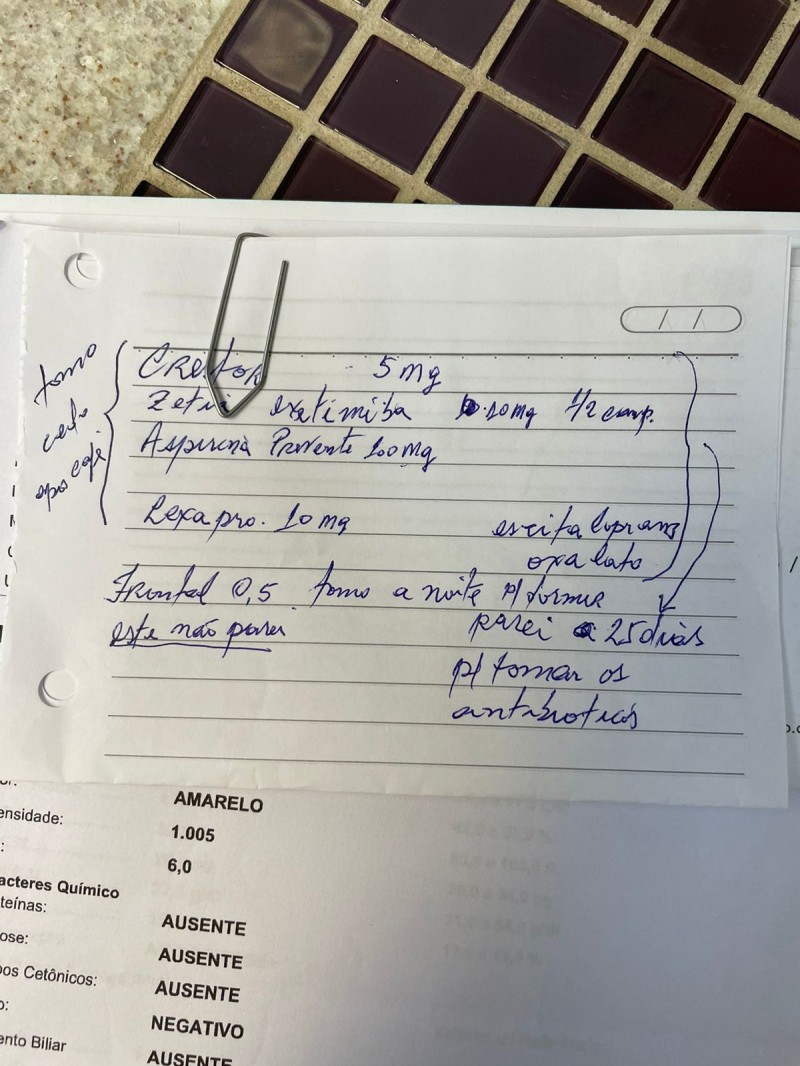 tomo
cedo
apos café
Crestor 5 mg
Zetia ezetimiba 10mg 1/2 comp.
Aspirina Prevente 100mg
Lexapro. 10 mg escitalopram
oxalato
Frontal 0,5 tomo a noite p/ dormir
este não parei parei a 25 dias
p/ tomar os
antibioticos
AMARELO
ensidade: 1.005
: 6,0
acteres Químico
teínas: AUSENTE
ose: AUSENTE
pos Cetônicos: AUSENTE
o: NEGATIVO
ento Biliar AUSENTE